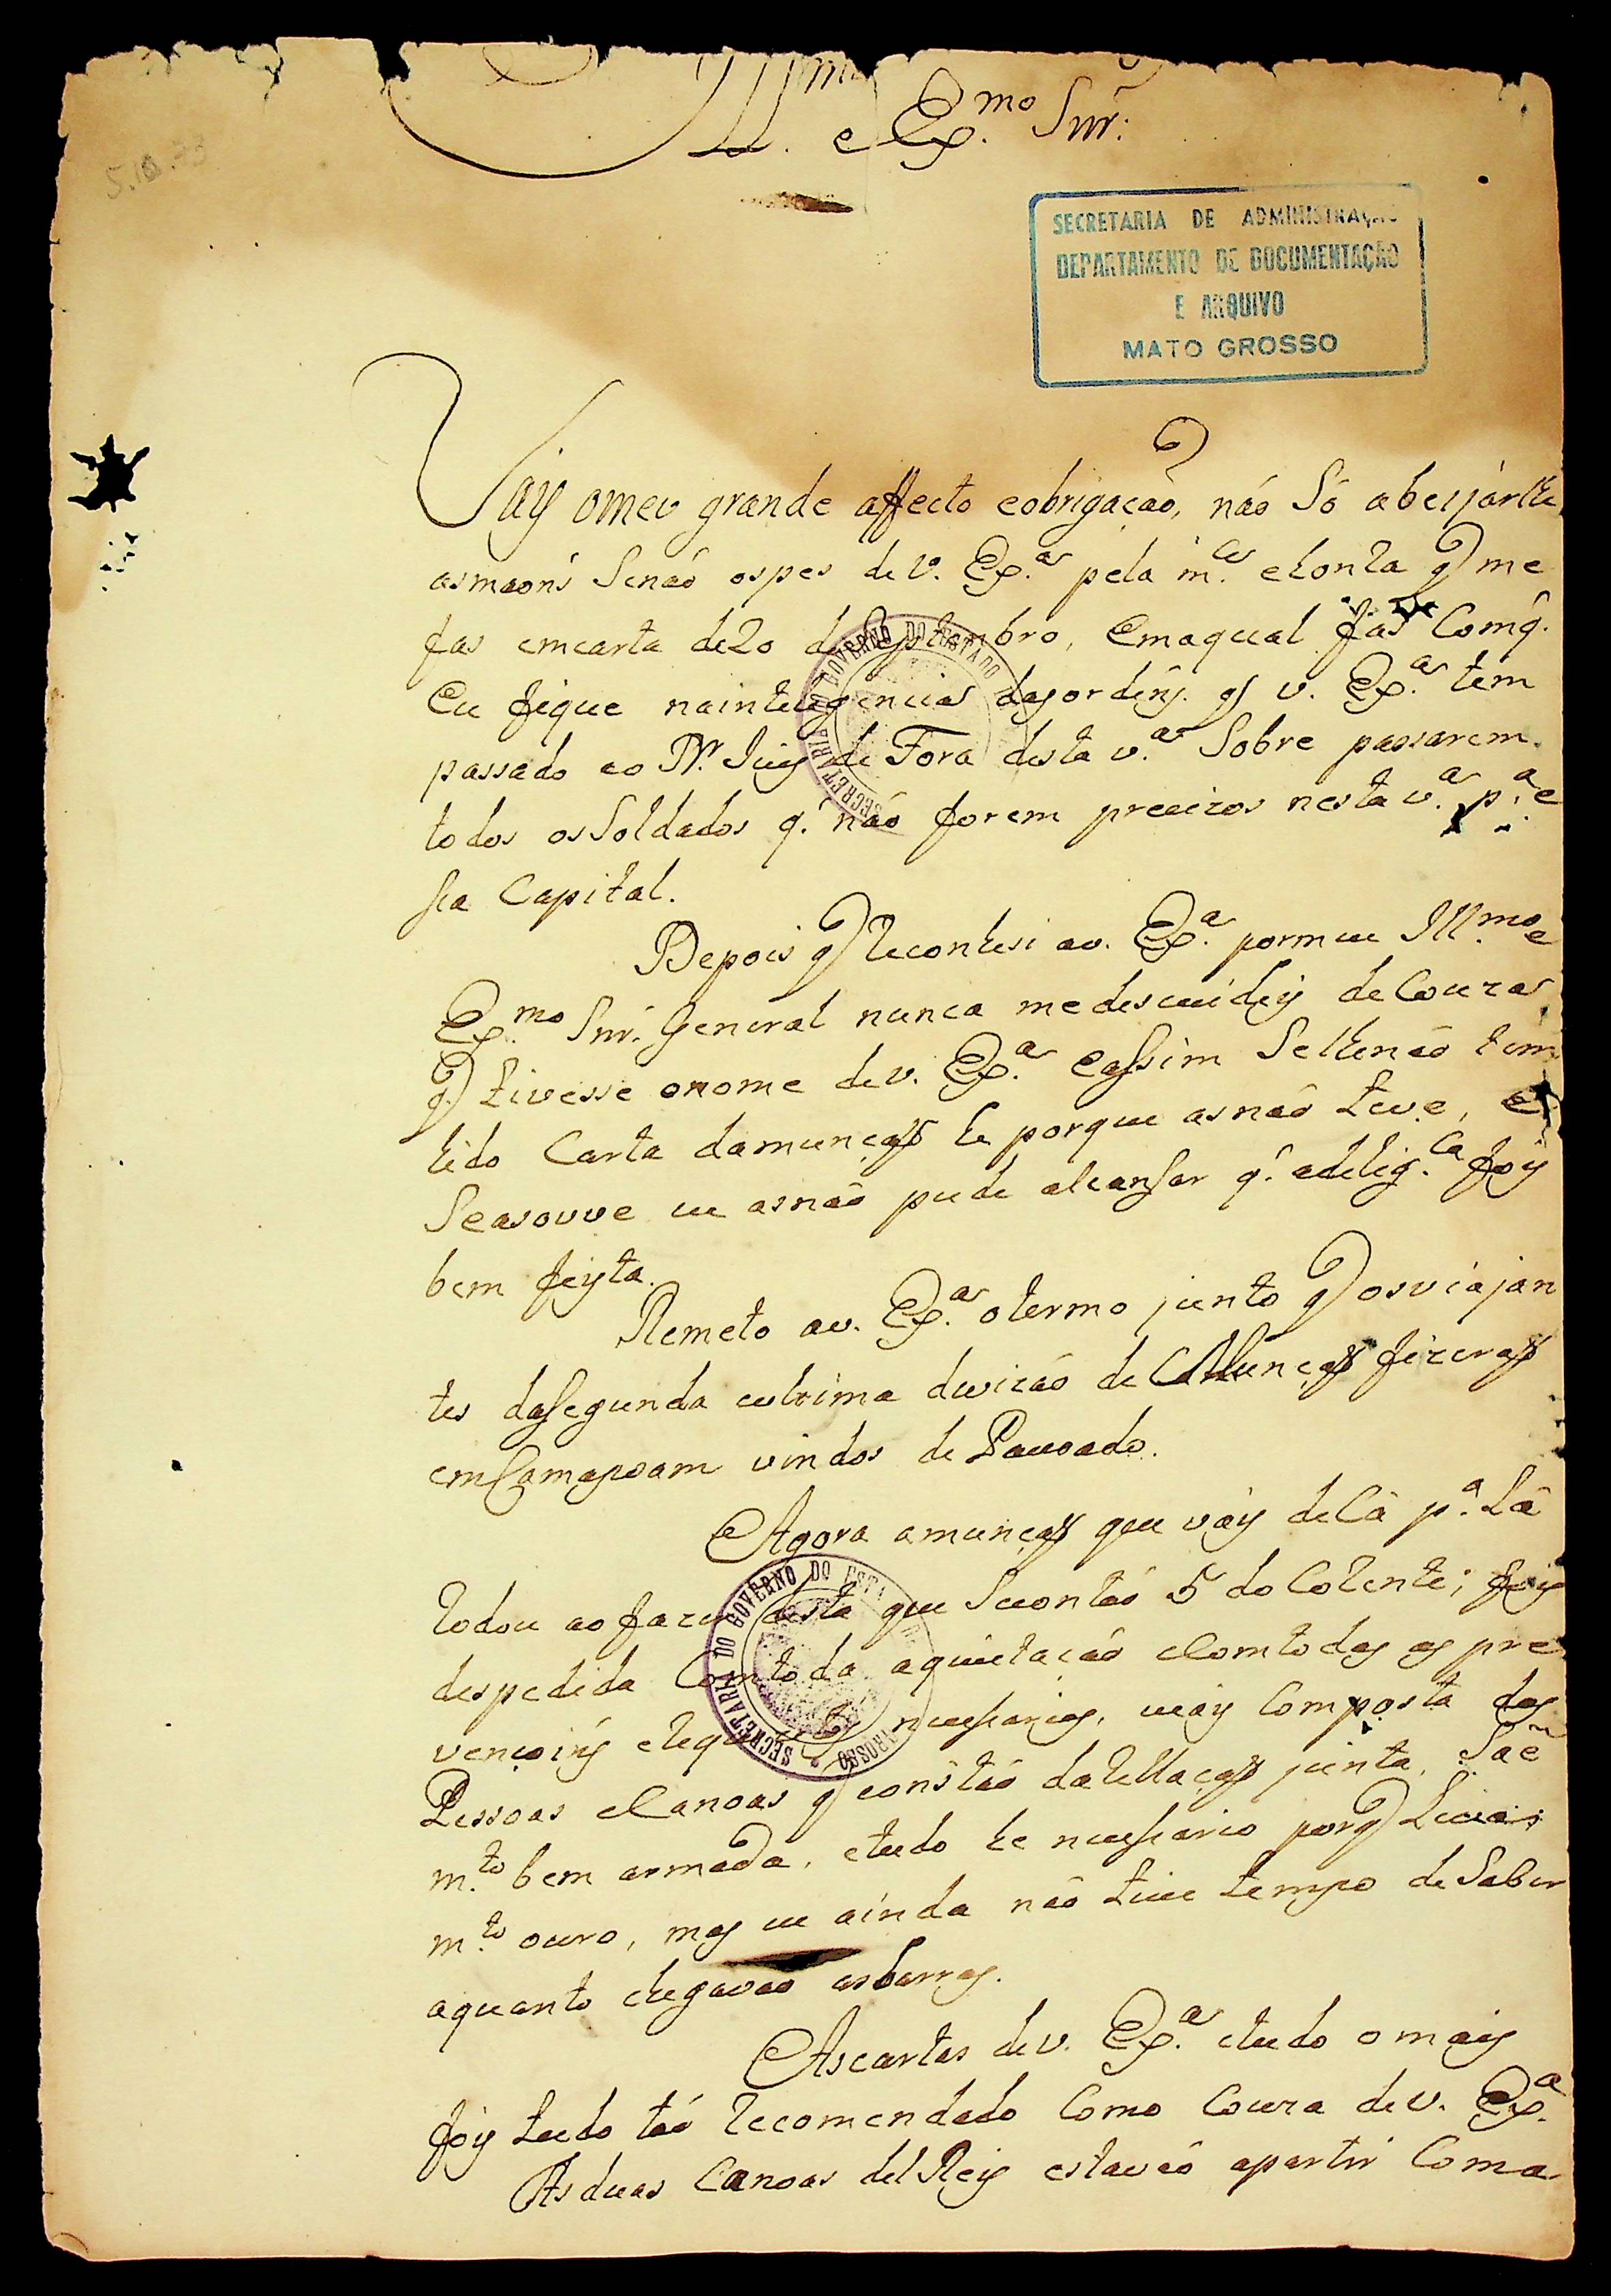 Ill.mo e Ex.mo Snr̃:
5.10.
SECRETARIA DE ADMINISTRAÇÃO
DEPARTAMENTO DE DOCUMENTAÇÃO
E ARQUIVO
MATO GROSSO
Vay omeu grande affecto eobrigação, não Só abeijarlhe
asmaons Senaó ospes de V. Ex.ª pela m.ce ehonra q̃ me
fas emcarta de20 de Septembro, Emaqual fas Comq̃.
Eu fique naintelegencia dasordẽns. q̃ V. Ex.ª tem
passado ao Dr. Juis de Fora desta v.ª Sobre passarem.
todos osSoldados q̃. não forem precizos nesta v.ª p.ª e
sa Capital.
Depois q̃ Reconhesi av. Ex.ª por meu Ill.mo e
Ex.mo Snr̃. General nunca medescuidey de Couza
q̃ tivesse onome dev. Ex.ª eassim Selhenaó tem
hido Carta damunçaõ he porque asnaó teve, e
Seasouve eu asnaó pude alcansar q̃. adelig.ca foy
bem feyta.
Remeto av. Ex.ª otermo junto q̃ osviajan
tes dasegunda eultima divizaó de Munçaõ fizeraõ
emCamapoam vindos de Povoado.
Agora amunçaõ que váy deCá p.ª Lá
Rodou aofazer desta que Secontaó 5 do Corente; foy
despedida Comtoda aquietaçaó eComtodas as pre
vençoins e necessarias, vay Composta das
Pessoas eCanoas q̃ constaó daRellaçaõ junta. Sae
m.to bem armada, etudo he necessario porq̃ Leva
m.to ouro, mas eu ainda naó tive tempo de Saber
aquanto chegavaó asbarras.
Ascartas dev. Ex.ª etudo omais
foy tudo taó Recomendado Como Couza de V. Ex.ª
Asduas Canoas del Rey estavaó apartir Coma
SECRETARIA DO GOVERNO DO ESTADO
SECRETARIA DO GOVERNO DO ESTADO DE GROSSO